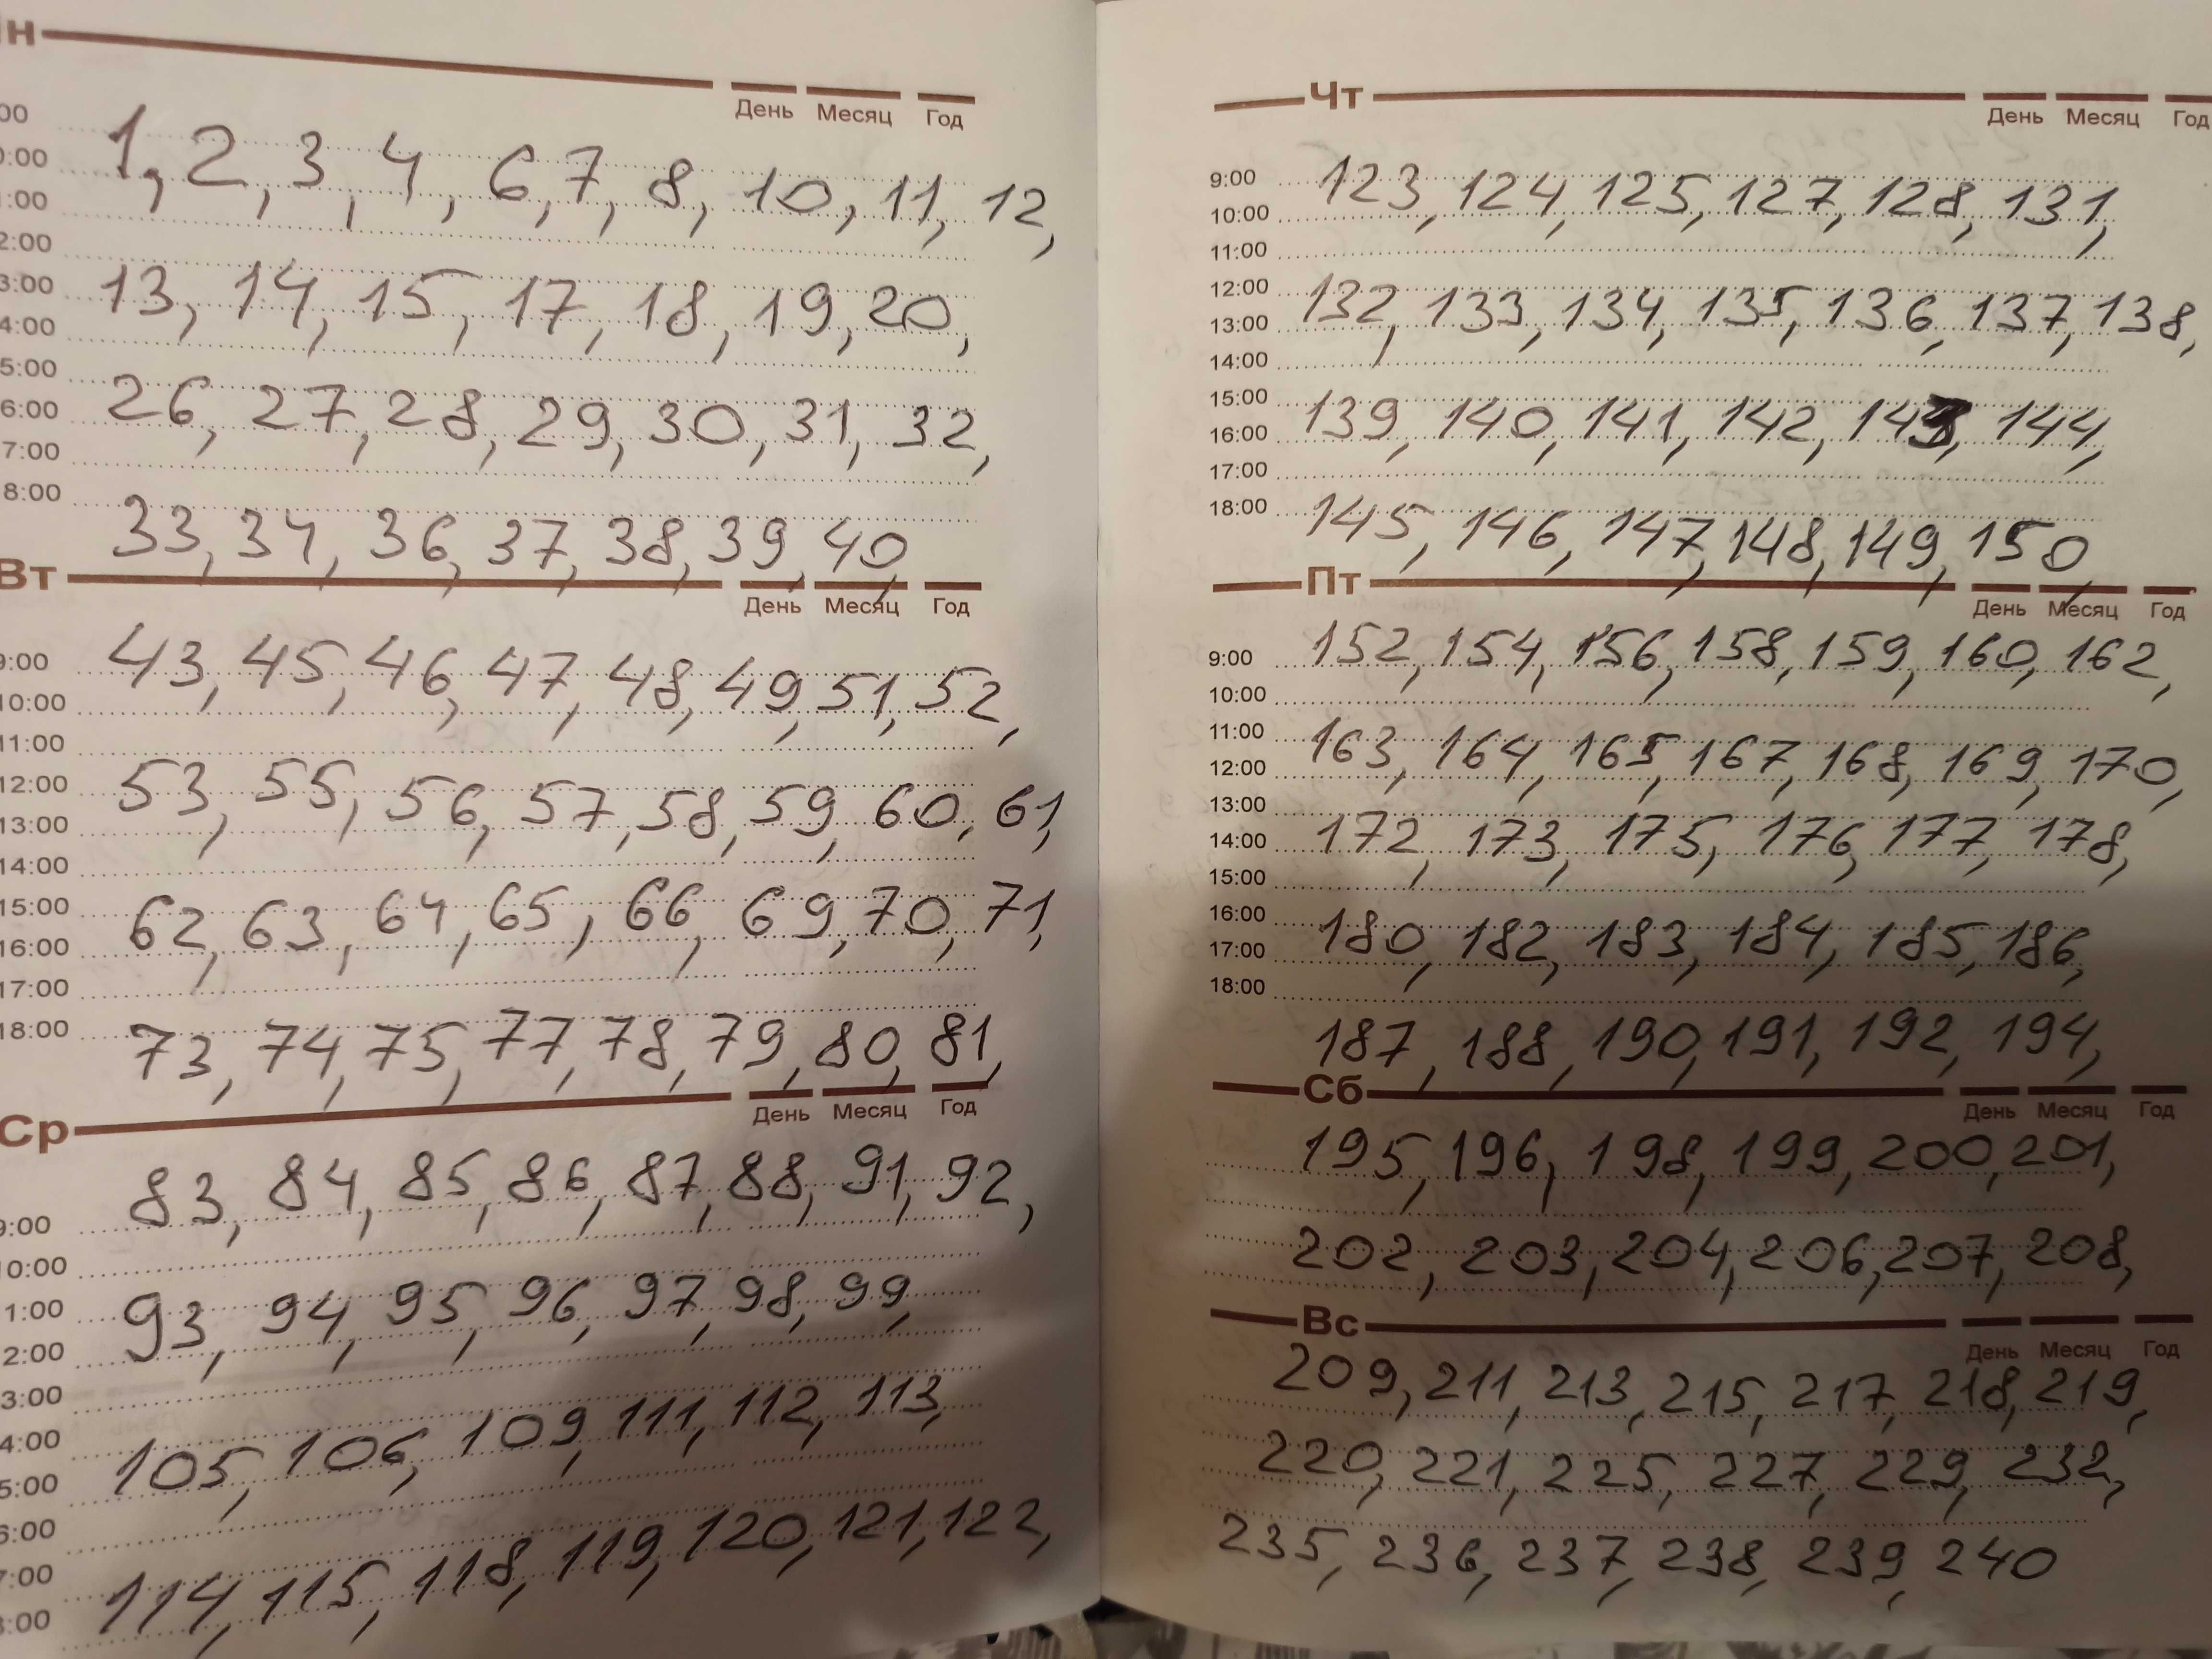 Пн
День Месяц Год
00
0:00 1, 2, 3, 4, 6, 7, 8, 10, 11, 12,
1:00
2:00
3:00 13, 14, 15, 17, 18, 19, 20,
4:00
5:00
6:00 26, 27, 28, 29, 30, 31, 32,
7:00
8:00
33, 34, 36, 37, 38, 39, 40,
Вт
День Месяц Год
9:00 43, 45, 46, 47, 48, 49, 51, 52,
10:00
11:00
12:00 53, 55, 56, 57, 58, 59, 60, 61,
13:00
14:00
15:00 62, 63, 64, 65, 66, 69, 70, 71,
16:00
17:00
18:00 73, 74, 75, 77, 78, 79, 80, 81,
Ср
День Месяц Год
83, 84, 85, 86, 87, 88, 91, 92,
9:00
0:00
1:00 93, 94, 95, 96, 97, 98, 99,
2:00
3:00
4:00
5:00 105, 106, 109, 111, 112, 113,
6:00
7:00
8:00 114, 115, 118, 119, 120, 121, 122,
Чт
День Месяц Год
9:00 123, 124, 125, 127, 128, 131,
10:00
11:00
12:00 132, 133, 134, 135, 136, 137, 138,
13:00
14:00
15:00 139, 140, 141, 142, 143, 144,
16:00
17:00
18:00 145, 146, 147, 148, 149, 150,
Пт
День Месяц Год
9:00 152, 154, 156, 158, 159, 160, 162,
10:00
11:00 163, 164, 165, 167, 168, 169, 170,
12:00
13:00
14:00 172, 173, 175, 176, 177, 178,
15:00
16:00
17:00 180, 182, 183, 184, 185, 186,
18:00
187, 188, 190, 191, 192, 194,
Сб
День Месяц Год
195, 196, 198, 199, 200, 201,
202, 203, 204, 206, 207, 208,
Вс
День Месяц Год
209, 211, 213, 215, 217, 218, 219,
220, 221, 225, 227, 229, 232,
235, 236, 237, 238, 239, 240